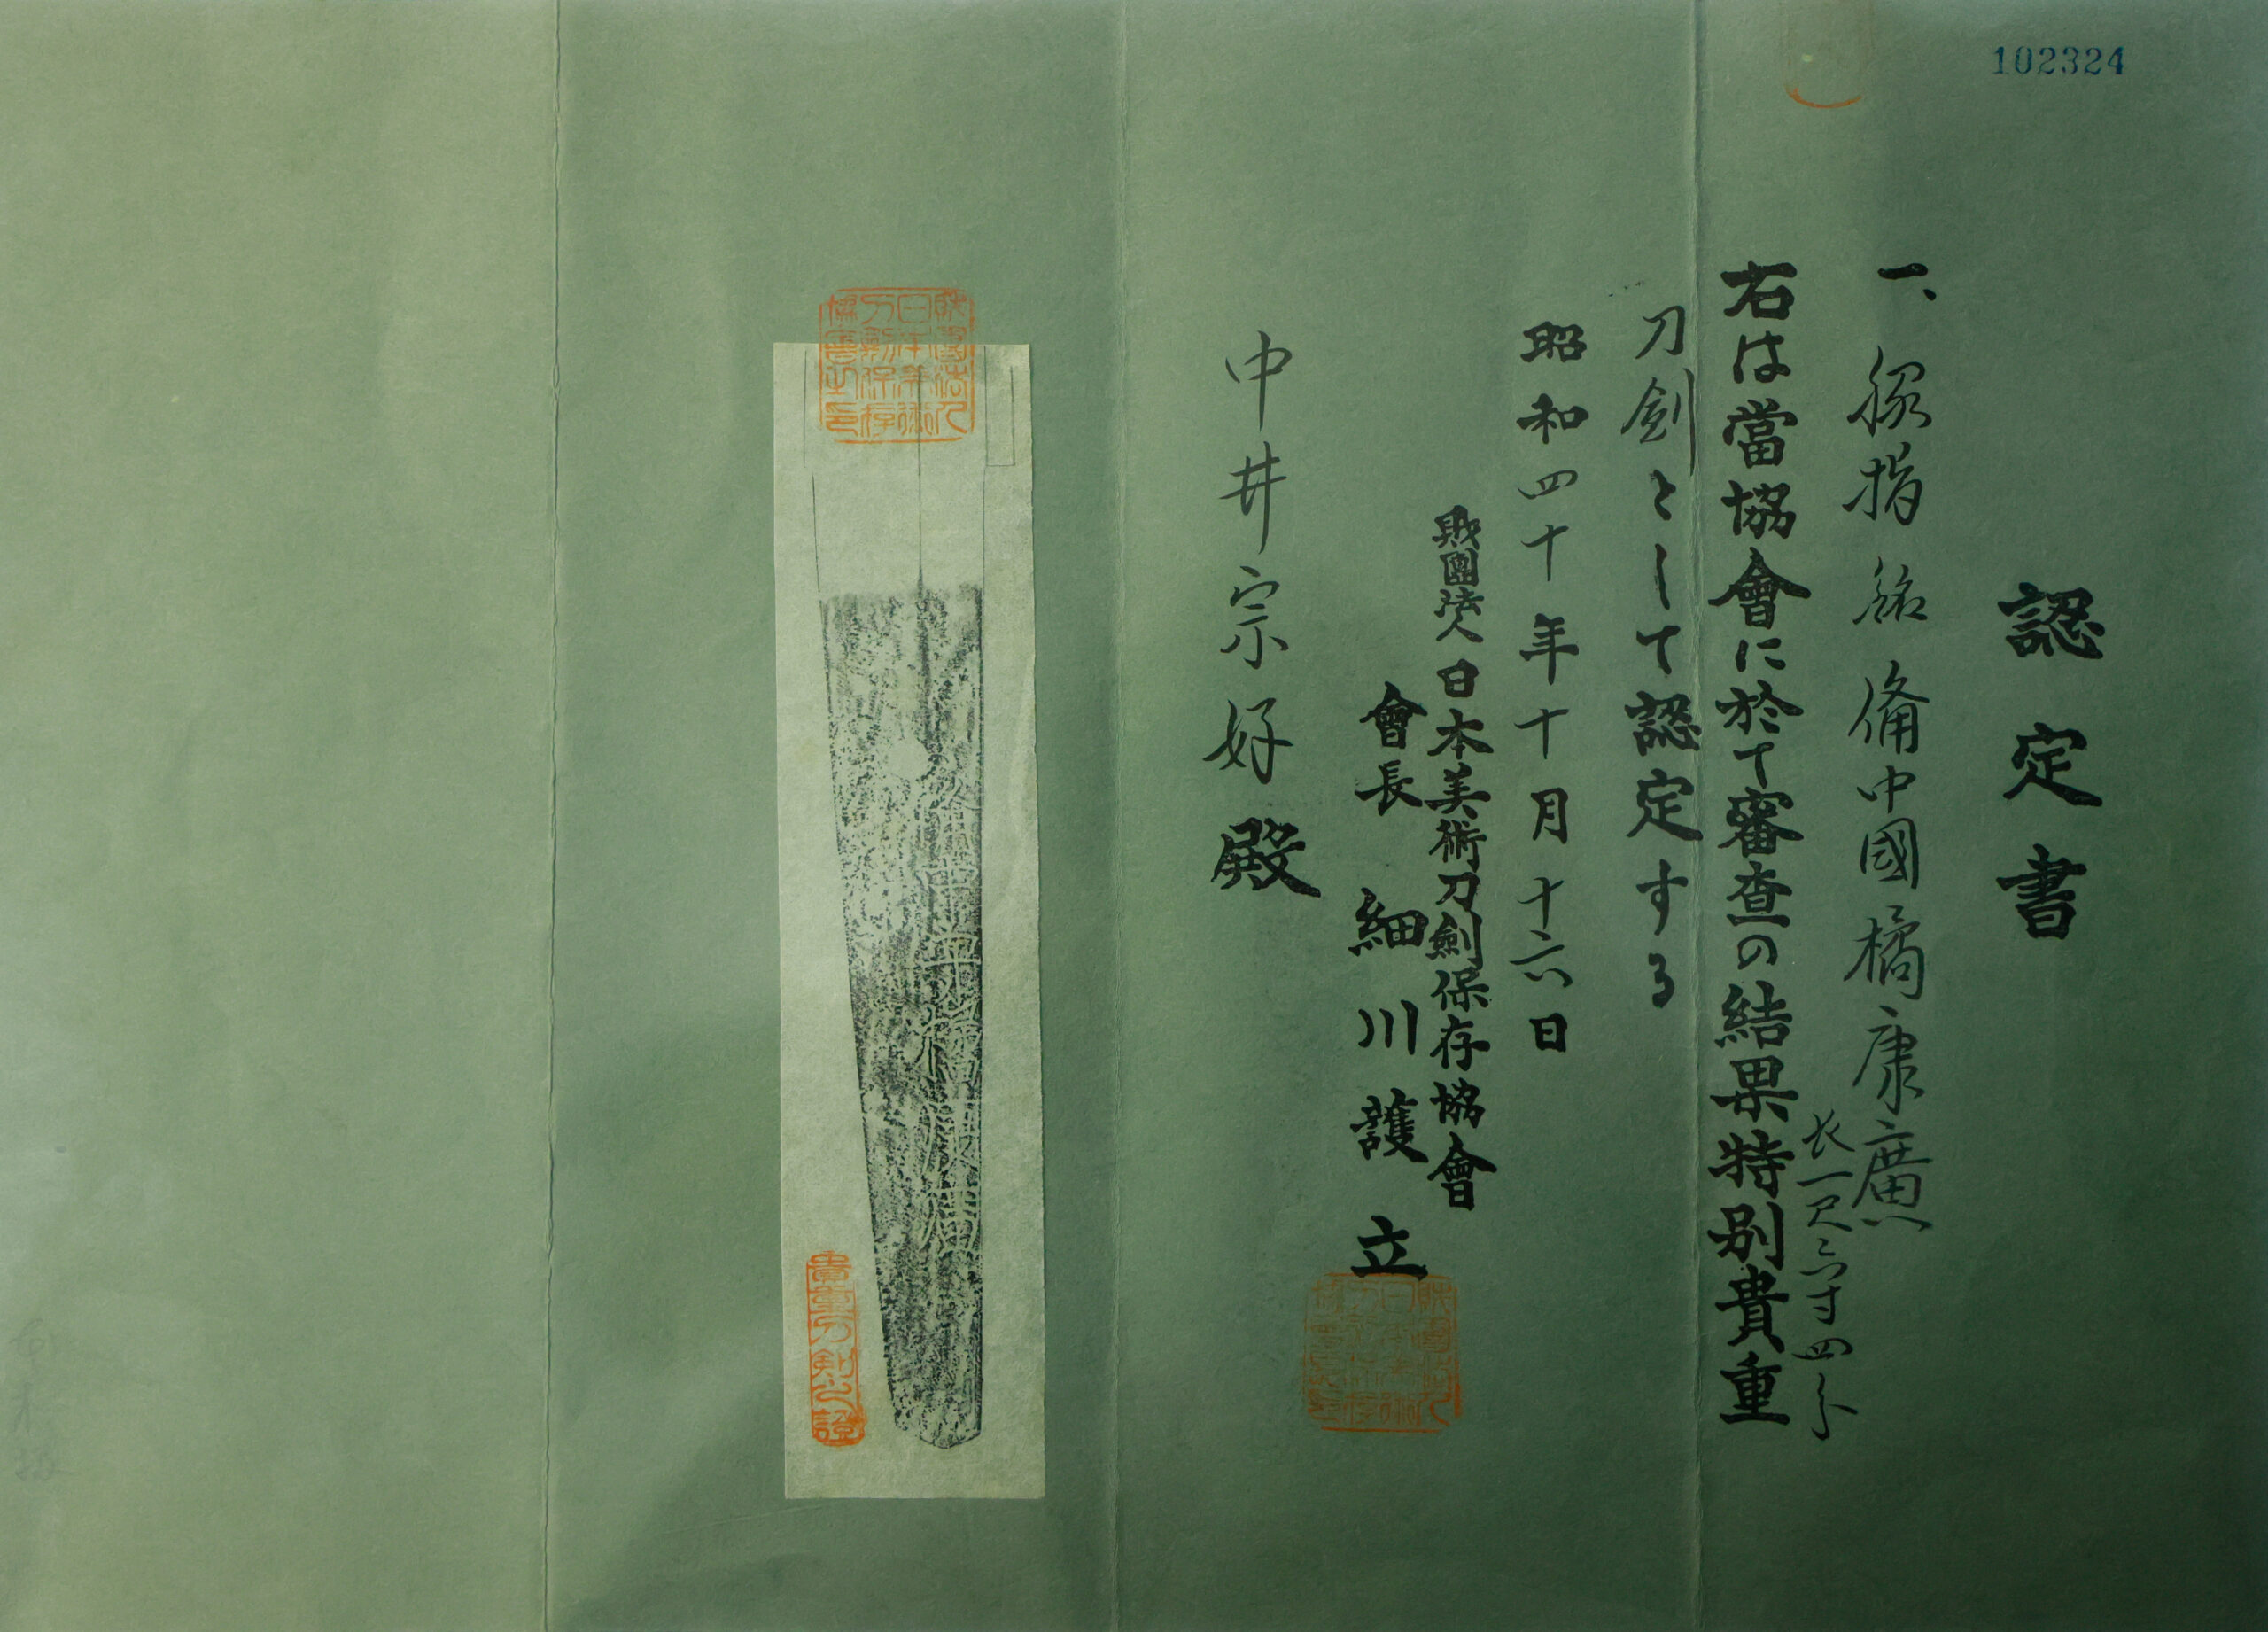 102324
認定書
一、脇指 銘 備中國橘康廣
長一尺六寸四分
右は當協會に於て審査の結果特別貴重
刀劍として認定する
昭和四十年十月十六日
財團法人日本美術刀劍保存協會
會長 細川護立
中井宗好殿
財團法人日本美術刀劍保存協會之印
貴重刀剣之證